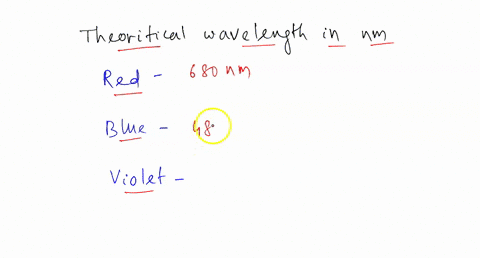 Theoritical wavelength in nm
Red - 680 nm
Blue - 48
Violet -